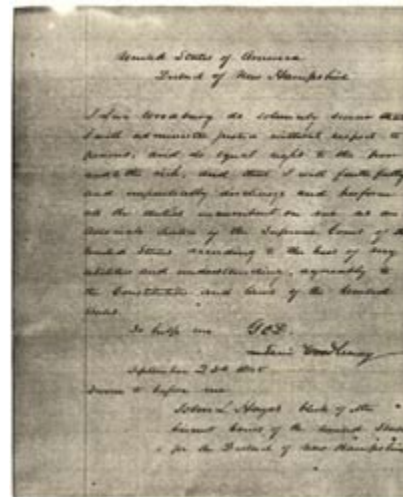 United States of America
District of New Hampshire
I Levi Woodbury do solemnly swear that
I will administer justice without respect to
persons, and do equal right to the poor
and to the rich, and that I will faithfully
and impartially discharge and perform
all the duties incumbent on me as an
Associate Justice of the Supreme Court of the
United States according to the best of my
abilities and understanding, agreeably to
the Constitution and laws of the United
States.
So help me GOD.
Levi Woodbury
September 23d 1845
Sworn to before me
John L Hayes Clerk of the
Circuit Court of the United States
for the District of New Hampshire